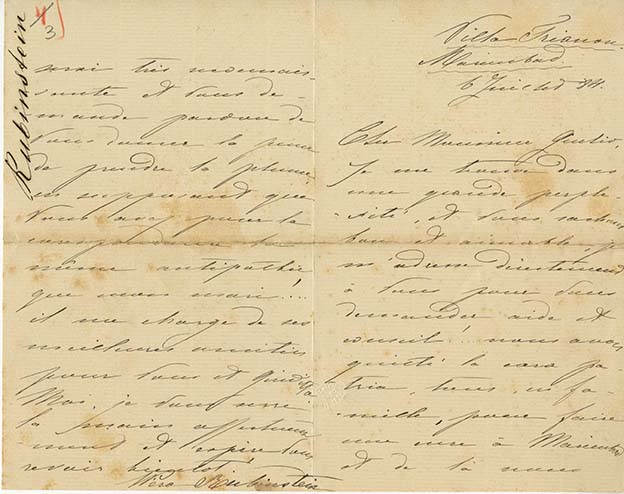 Villa Trianon.
Marienbad.
6 Juillet 94.
Cher Monsieur Giulio,
Je me trouve dans
une grande perple-
xité, et vous sachant
bon et aimable, je
m'adresse directement
à vous pour vous
demander aide et
conseil! nous avons
quitté la cara pa-
tria, tous, en fa-
mille, pour faire
une cure à Marienbad
et de là nous
Rubinstein
3
serai très reconnais-
sante et vous de-
mande pardon de
vous donner la peine
de prendre la plume,
en supposant que
vous avez pour la
correspondance la
même antipathie
que mon mari...!
il me charge de ses
meilleures amitiés
pour vous et
Moi, je vous serre
la main affectueuse
ment et espère vous
revoir bientôt!
Véra Rubinstein